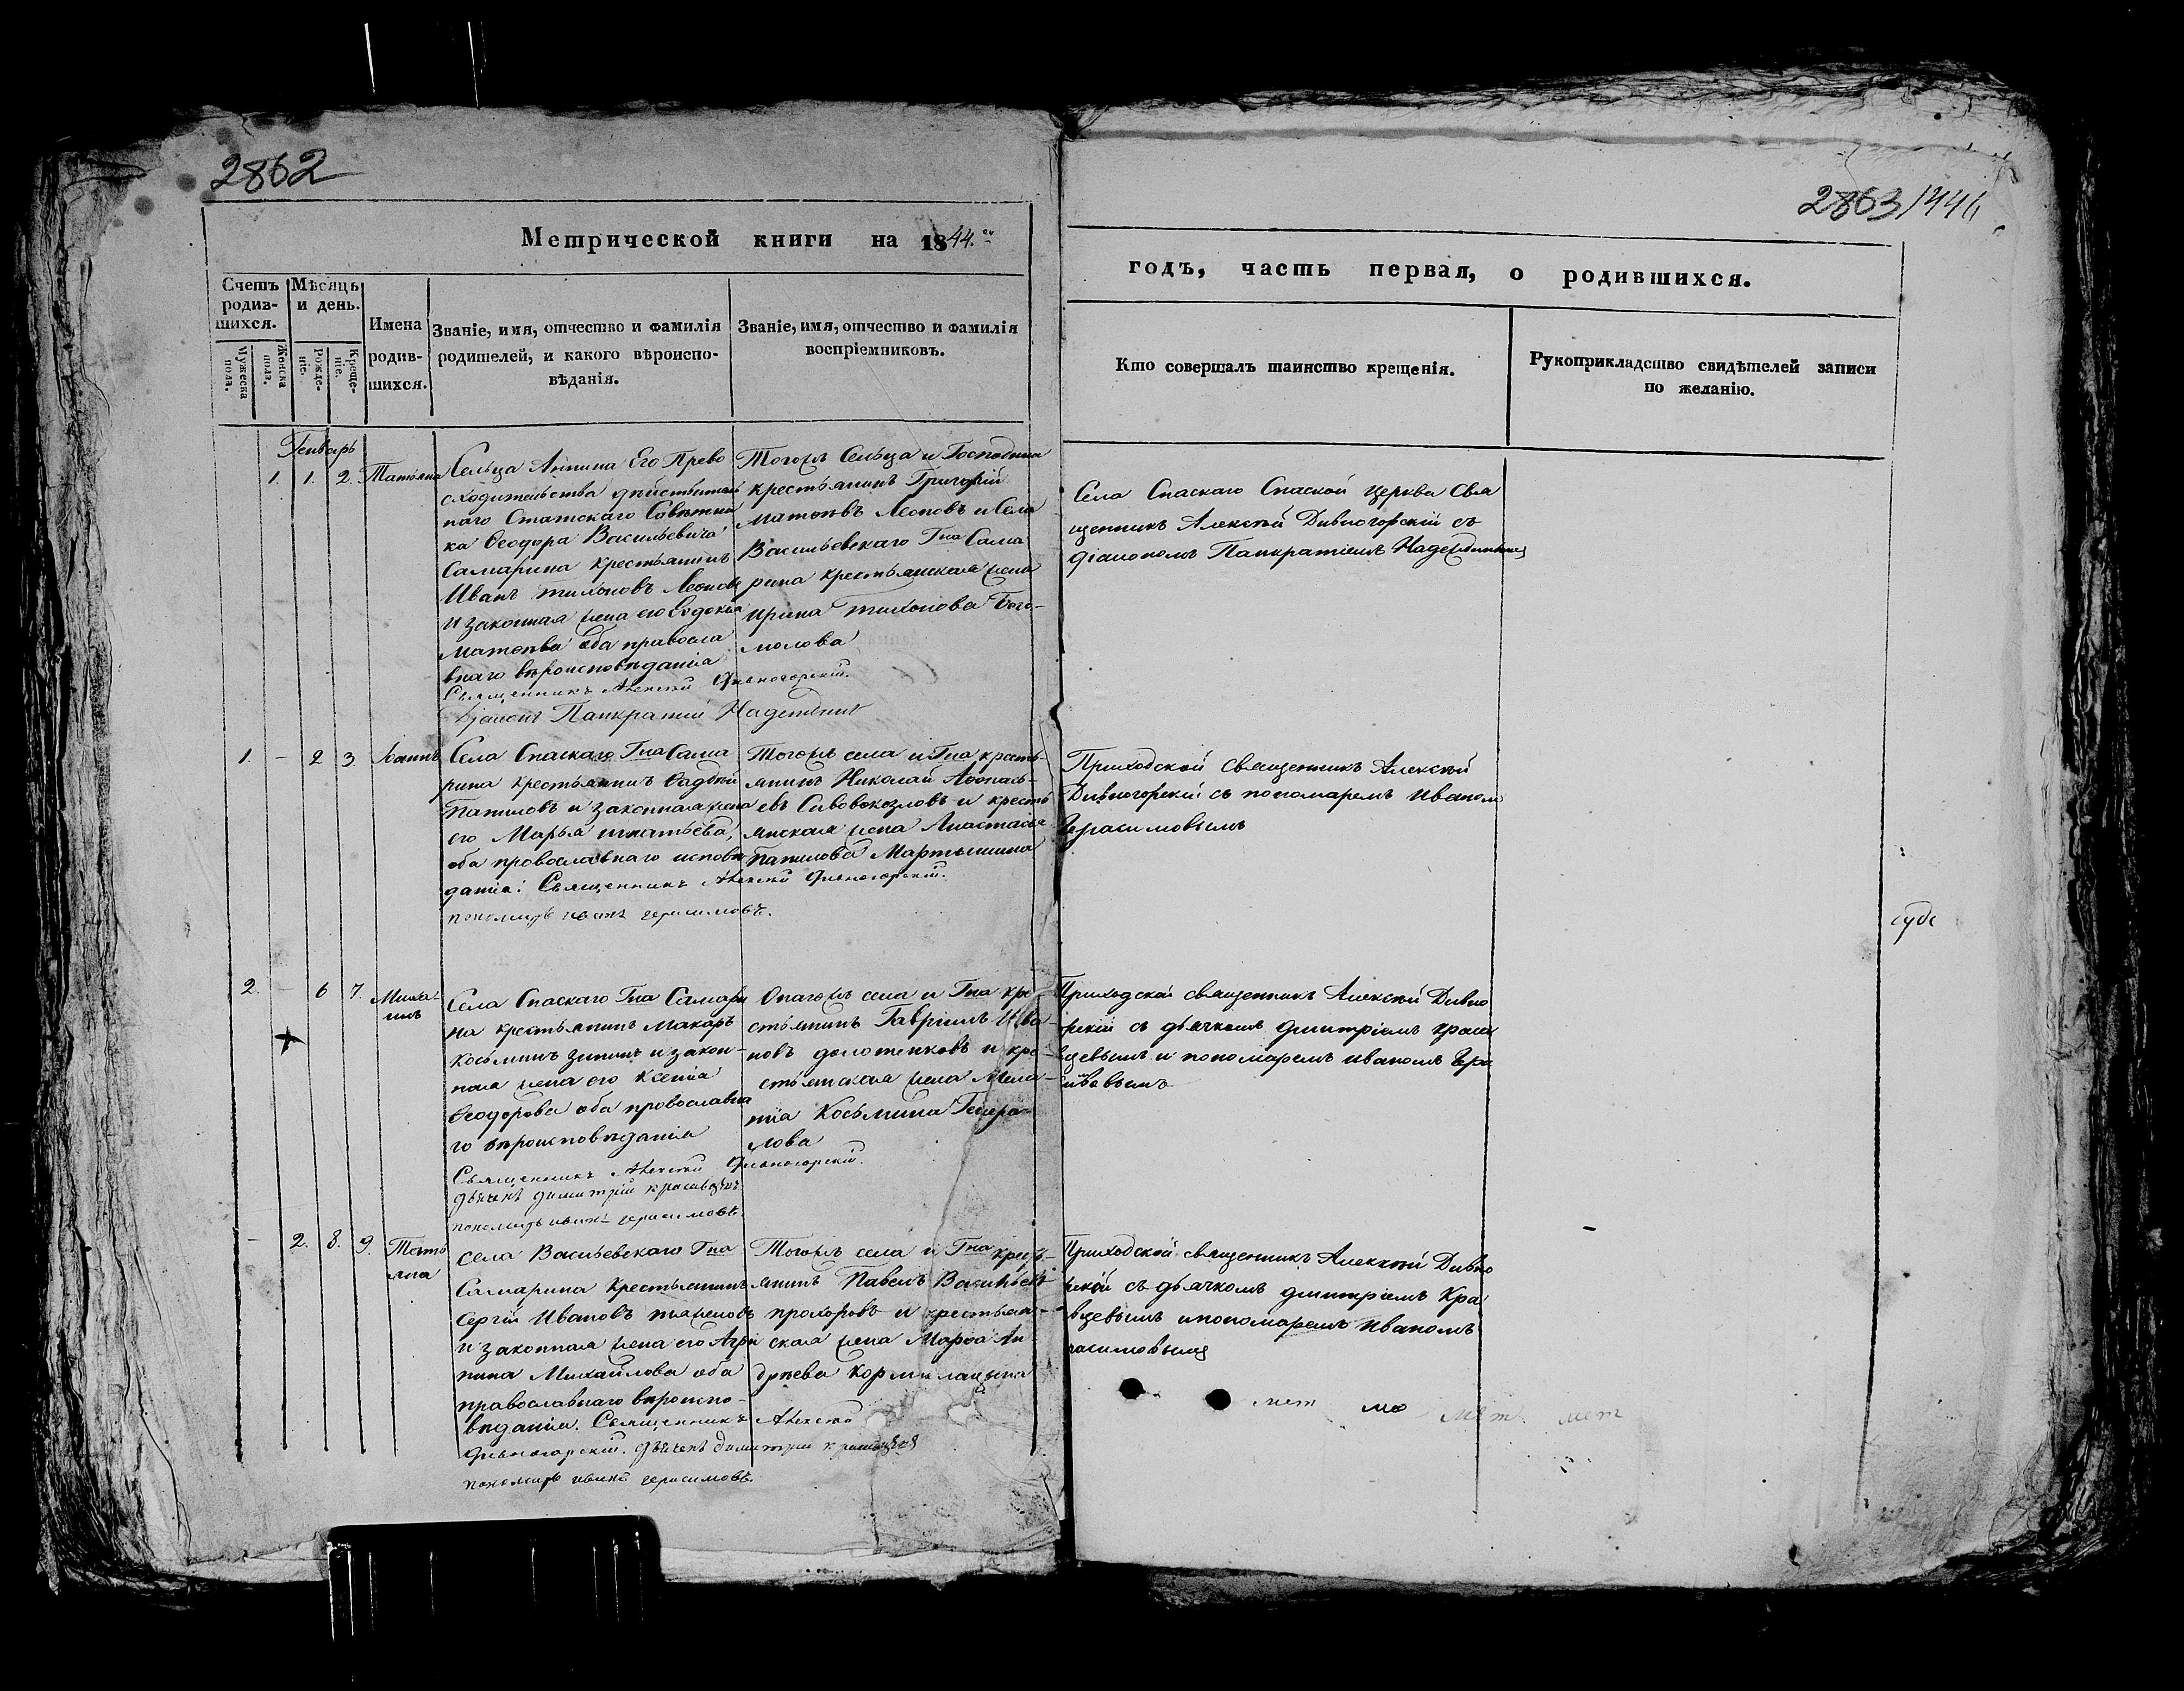 2862
2863/1446
Метрической книги на 1844.
годъ, часть первая, о родившихся.
Счетъ родив-шихся.
Мужеска пола.
Женска пола.
Мѣсяцъ и день.
Рожде-ніе.
Креще-ніе.
Имена родив-шихся.
Званіе, имя, отчество и фамилія родителей, и какого вѣроиспо-вѣданія.
Званіе, имя, отчество и фамилія воспріемниковъ.
Кто совершалъ таинство крещенія.
Рукоприкладство свидѣтелей записи по желанію.
Генварь
1. 1. 2. Татьяна
Сельца Аннина Его Прево
сходительства дѣйствитель
наго Статскаго Совѣтни
ка Ѳеодора Васильевича
Самарина крестьянинъ
Иванъ тихоновъ Леонов
и законная жена его Евдокіа
Матвѣева оба правосла
внаго вѣроисповѣданіа
Священникъ Алексѣй Дивногорскій.
Діаконъ Панкратій Надеждинъ
Тогожъ Сельца и Господина
крестьянинъ Григорій
Матвѣевъ Леоновъ и Села
Васильевскаго Гна Сама
рина крестьянская жена
ирина тихонова Бого-
молова
Села Спаскаго Спаской церкви Свя
щенникъ Алексѣй Дивногорскій съ
діакономъ Панкратіемъ Надеждинымъ
1. - 2 3. Іоаннъ
Села Спаскаго Гна Сама
рина крестьянинъ Фаддѣй
и законная жена
его Марья игнатьева,
оба провославнаго исповѣ
даніа: Священникъ Алексѣй Дивногорскій.
пономарь иванъ герасимовъ.
Тогожъ села и Гна кресть-
янинъ Николай Аѳонась-
евъ и кресть
янская жена Анастасіа
Мартышина
Приходской священникъ Алексѣй
Дивногорскій съ пономаремъ Иваном
Герасимовымъ
суде
2. - 6 7. Миха-
илъ
Села Спаскаго Гна Самари
на крестьянинъ Макаръ
Косьминъ Зининъ и закон-
ная жена его Ксеніа
Ѳеодорова оба провославна
го вѣроисповѣданіа
Священникъ Алексѣй Дивногорскій.
дьячекъ димитрій красавцевъ
пономарь иванъ герасимовъ.
Онагожъ села и Гна кре-
стьянинъ Гавріилъ Ива-
новъ долотенковъ и кре-
стьянская жена Мела-
ніа Косьмина Генера-
лова
Приходской священникъ Алексѣй Дивно
рскій съ дьячкомъ дмитріемъ краса
вцевымъ и пономаремъ иваномъ Гера
симовымъ
- 2. 8. 9. Тать
яна
села Васильевскаго Гна
Самарина Крестьянинъ
Сергій Ивановъ
и законная жена его Агри
пина Михайлова оба
православнаго вѣроиспо-
вѣданіа. Священникъ Алексѣй
Дивногорскій. дьячекъ димитрій красавцевъ
пономарь иванъ герасимовъ.
Тогожъ села и Гна кресть-
янинъ Павелъ Васильевъ
прохоровъ и крестьян-
ская жена Марѳа Ан-
дрѣева Кормилицына
Приходской священникъ Алексѣй Дивно
рскій съ дьячкомъ дмитріемъ Кра
вцевымъ и пономаремъ Иваномъ
расимовымъ
мет мо мет. мет